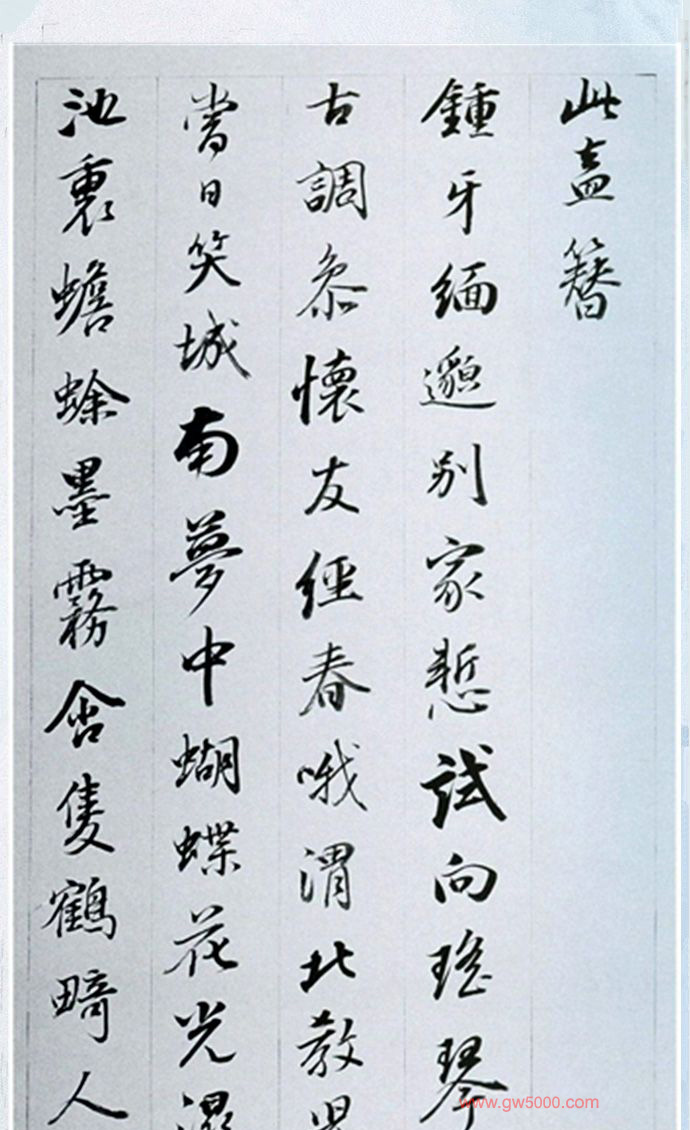 此盍簪
鍾牙緬邈別家慙試向瑤琴
古調叅懷友經春哦渭北教
當日笑城南夢中蝴蝶花光
池裏蟾蜍墨霧含隻鶴畸人
www.gw5000.com